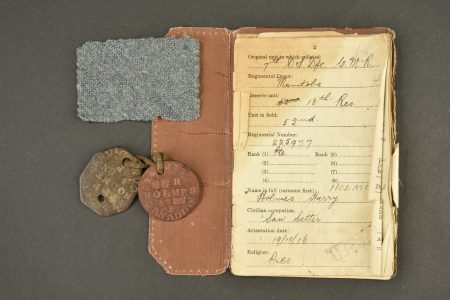 2
Original unit in which enlisted:
7th Dft. C.M.R.
Regimental Depot:
Manitoba
Reserve unit:
18th Res.
Unit in field:
52nd.
Regimental Number:
225977
Rank (1) Pte Rank (5)
(2) (6)
(3) (7)
(4) (8)
HOLME
Name in full (surname first):
Holmes Harry
Civilian occupation:
Saw Setter
Attestation date:
19/10/16
Religion:
Pres
H
HOLMES
52 BN
CANADIAN